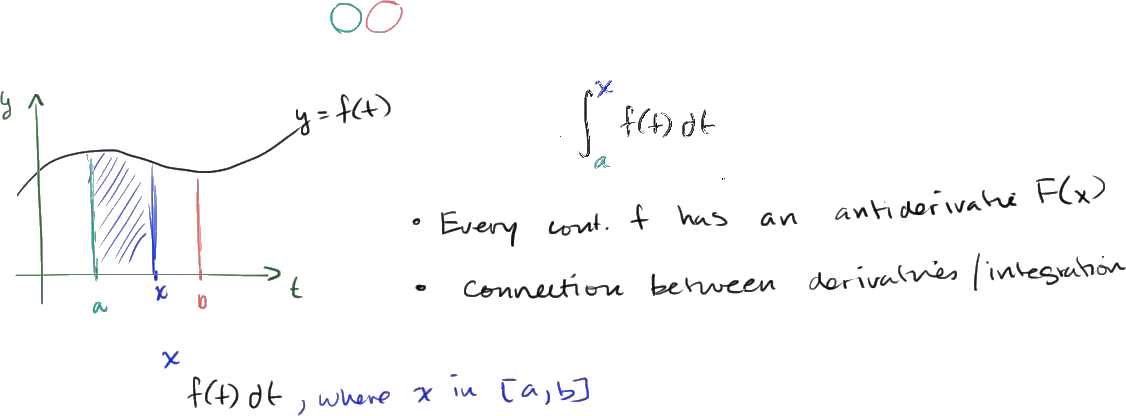 y
y = f(t)
a x b t
∫ₐˣ f(t) dt
• Every cont. f has an antiderivative F(x)
• connection between derivatives/integration
x
f(t) dt, where x in [a,b]